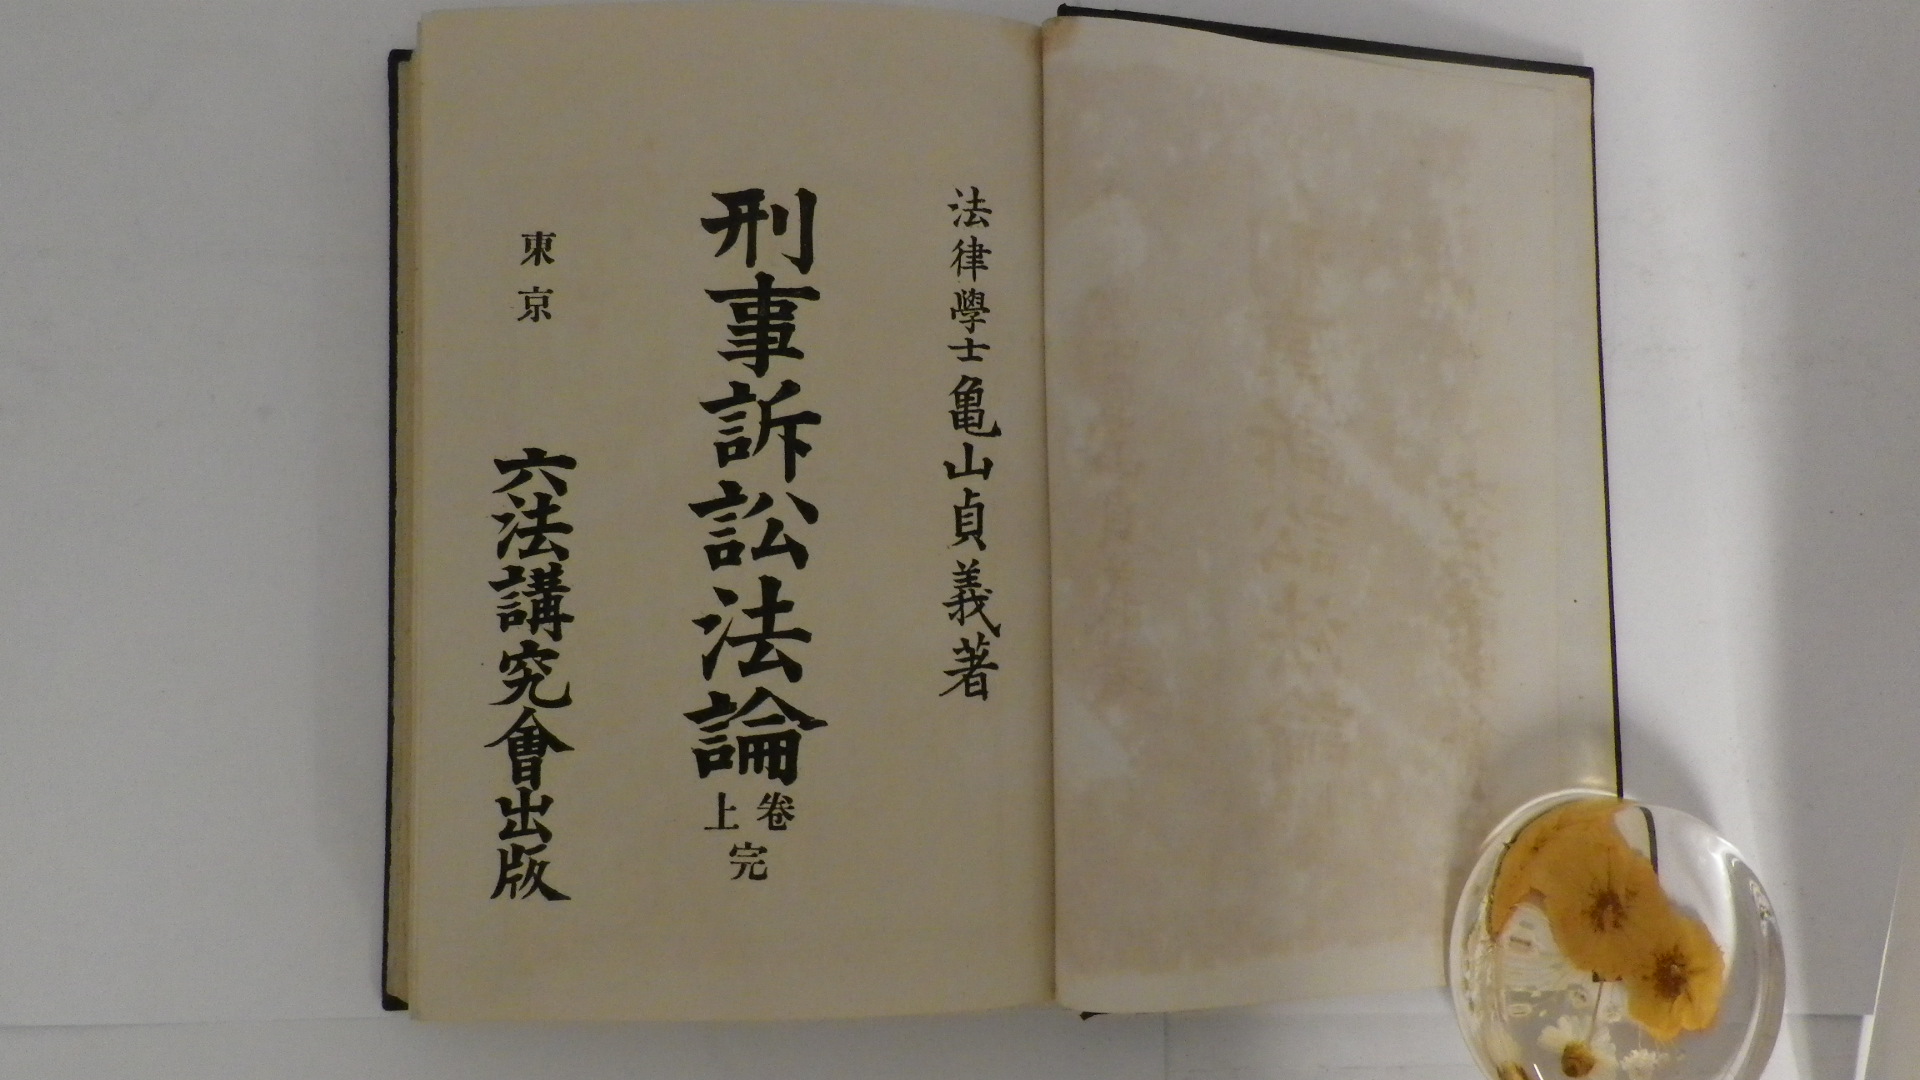 法律學士亀山貞義著
刑事訴訟法論
卷上
完
東京
六法講究會出版